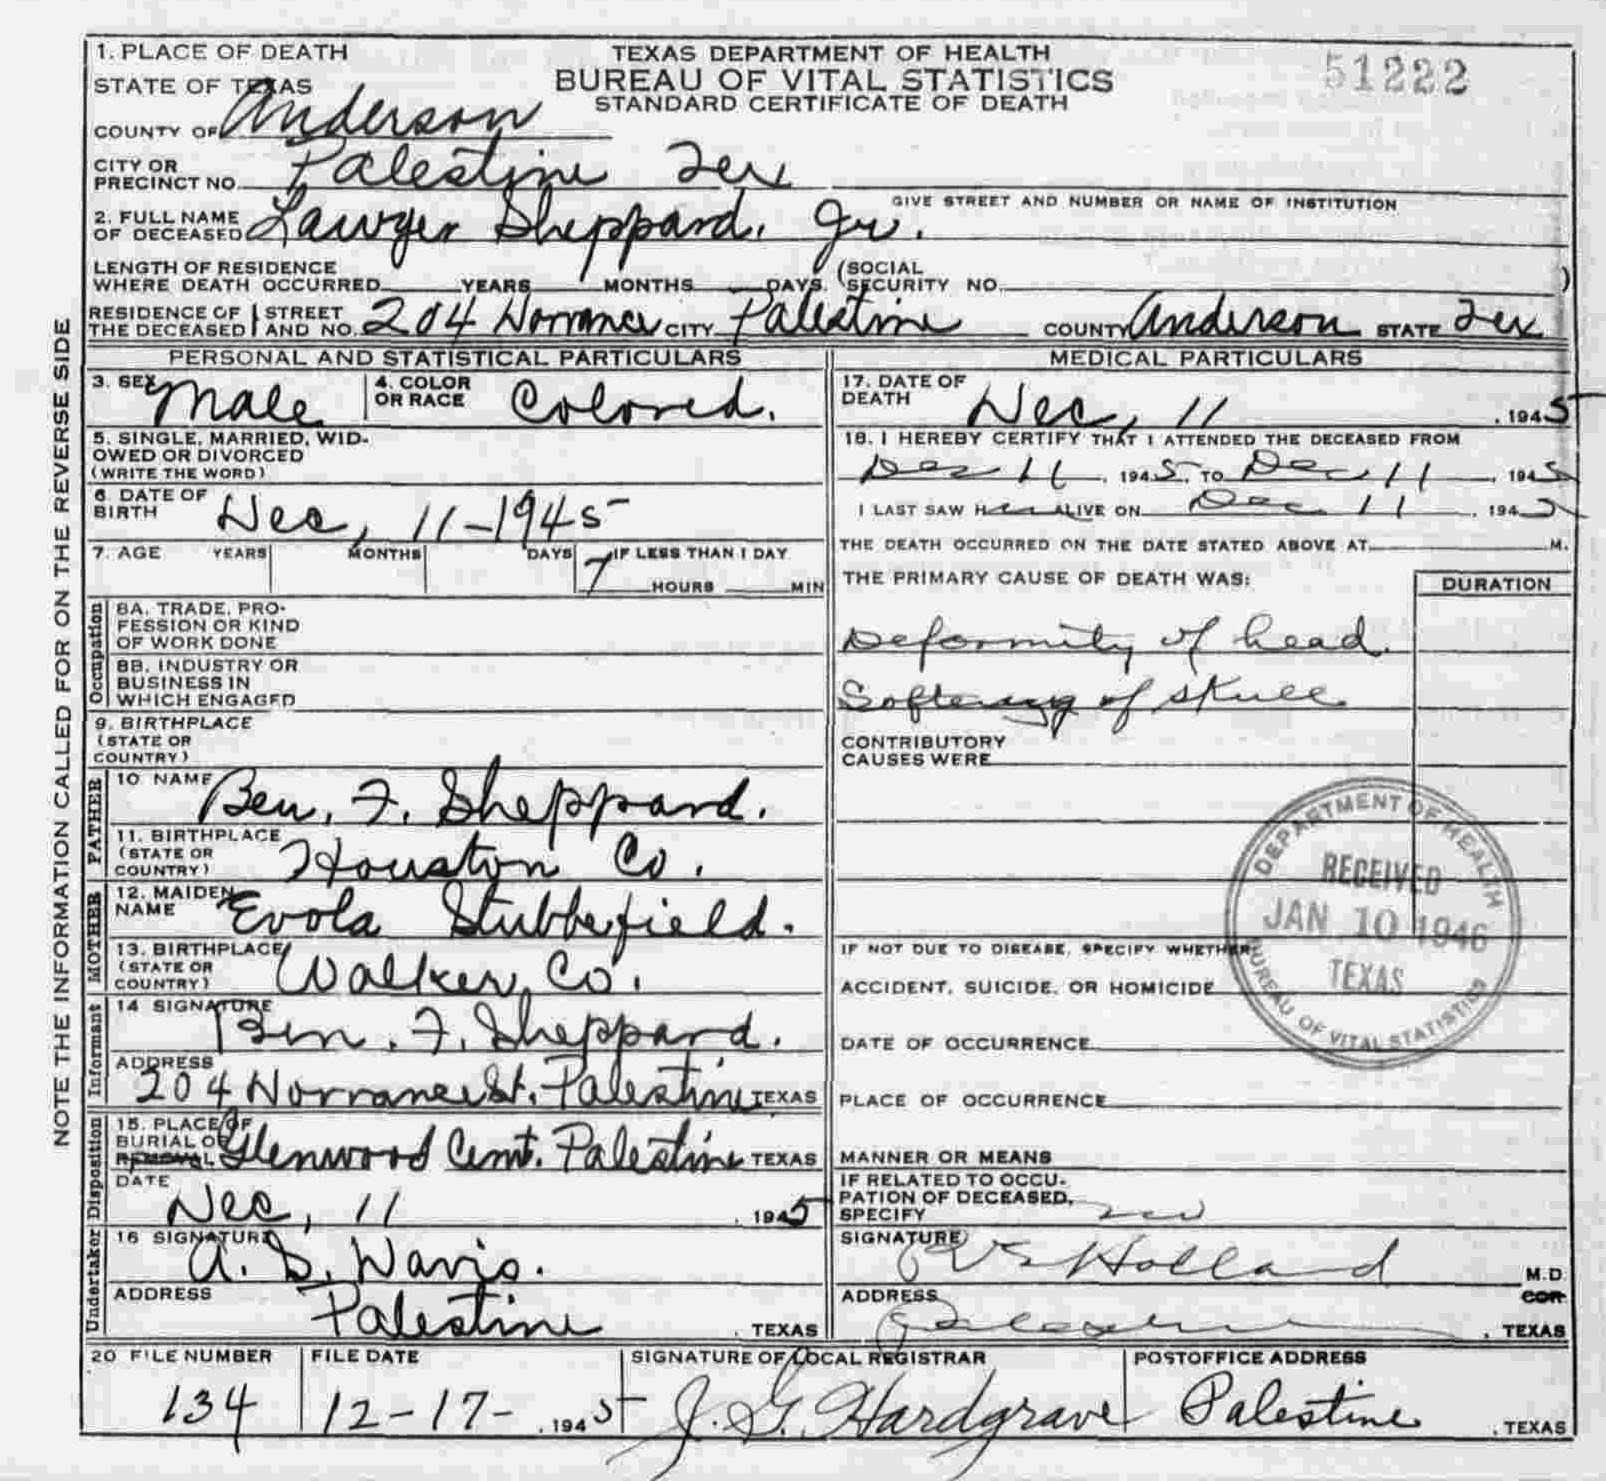 1. PLACE OF DEATH
STATE OF TEXAS
TEXAS DEPARTMENT OF HEALTH
BUREAU OF VITAL STATISTICS
STANDARD CERTIFICATE OF DEATH
51222
COUNTY OF Anderson
CITY OR PRECINCT NO. Palestine Tex
GIVE STREET AND NUMBER OR NAME OF INSTITUTION
2. FULL NAME OF DECEASED Lawyer Sheppard, Jr.
LENGTH OF RESIDENCE WHERE DEATH OCCURRED YEARS MONTHS DAYS. (SOCIAL SECURITY NO. )
RESIDENCE OF THE DECEASED STREET AND NO. 204 CITY Palestine COUNTY Anderson STATE Tex
PERSONAL AND STATISTICAL PARTICULARS
3. SEX Male 4. COLOR OR RACE Colored.
5. SINGLE, MARRIED, WIDOWED OR DIVORCED
(WRITE THE WORD)
6. DATE OF BIRTH Dec, 11-1945
7. AGE YEARS MONTHS DAYS IF LESS THAN 1 DAY
7 HOURS MIN
Occupation
8A. TRADE, PROFESSION OR KIND OF WORK DONE
8B. INDUSTRY OR BUSINESS IN WHICH ENGAGED
9. BIRTHPLACE (STATE OR COUNTRY)
FATHER
10 NAME Ben. F. Sheppard.
11. BIRTHPLACE (STATE OR COUNTRY) Houston Co.
MOTHER
12. MAIDEN NAME Evola Stubblefield.
13. BIRTHPLACE (STATE OR COUNTRY) Walker, Co.
Informant
14 SIGNATURE Ben. F. Sheppard.
ADDRESS 204 St. Palestine TEXAS
Disposition
15. PLACE OF BURIAL OR REMOVAL Glenwood Cemt. Palestine TEXAS
DATE Dec, 11 1945
Undertaker
16 SIGNATURE A. D. Davis.
ADDRESS Palestine, TEXAS
MEDICAL PARTICULARS
17. DATE OF DEATH Dec, 11, 1945
18. I HEREBY CERTIFY THAT I ATTENDED THE DECEASED FROM
Dec 11, 1945, TO Dec 11, 1945
I LAST SAW H ALIVE ON Dec 11, 1945
THE DEATH OCCURRED ON THE DATE STATED ABOVE AT M.
THE PRIMARY CAUSE OF DEATH WAS: DURATION
Deformity of head
Softening of skull
CONTRIBUTORY CAUSES WERE
DEPARTMENT OF HEALTH
RECEIVED
JAN 10 1946
TEXAS
BUREAU OF VITAL STATISTICS
IF NOT DUE TO DISEASE, SPECIFY WHETHER
ACCIDENT, SUICIDE, OR HOMICIDE
DATE OF OCCURRENCE
PLACE OF OCCURRENCE
MANNER OR MEANS
IF RELATED TO OCCUPATION OF DECEASED, SPECIFY
SIGNATURE Holland M.D.
ADDRESS Palestine, TEXAS
20 FILE NUMBER 134
FILE DATE 12-17-, 1945
SIGNATURE OF LOCAL REGISTRAR J. G. Hardgrave
POSTOFFICE ADDRESS Palestine, TEXAS
NOTE THE INFORMATION CALLED FOR ON THE REVERSE SIDE